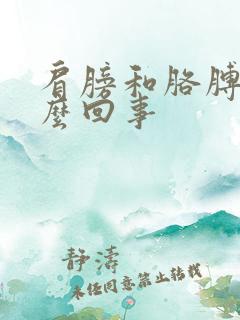 肩膀和胳膊
麽回事
静涛
未经同意禁止转载